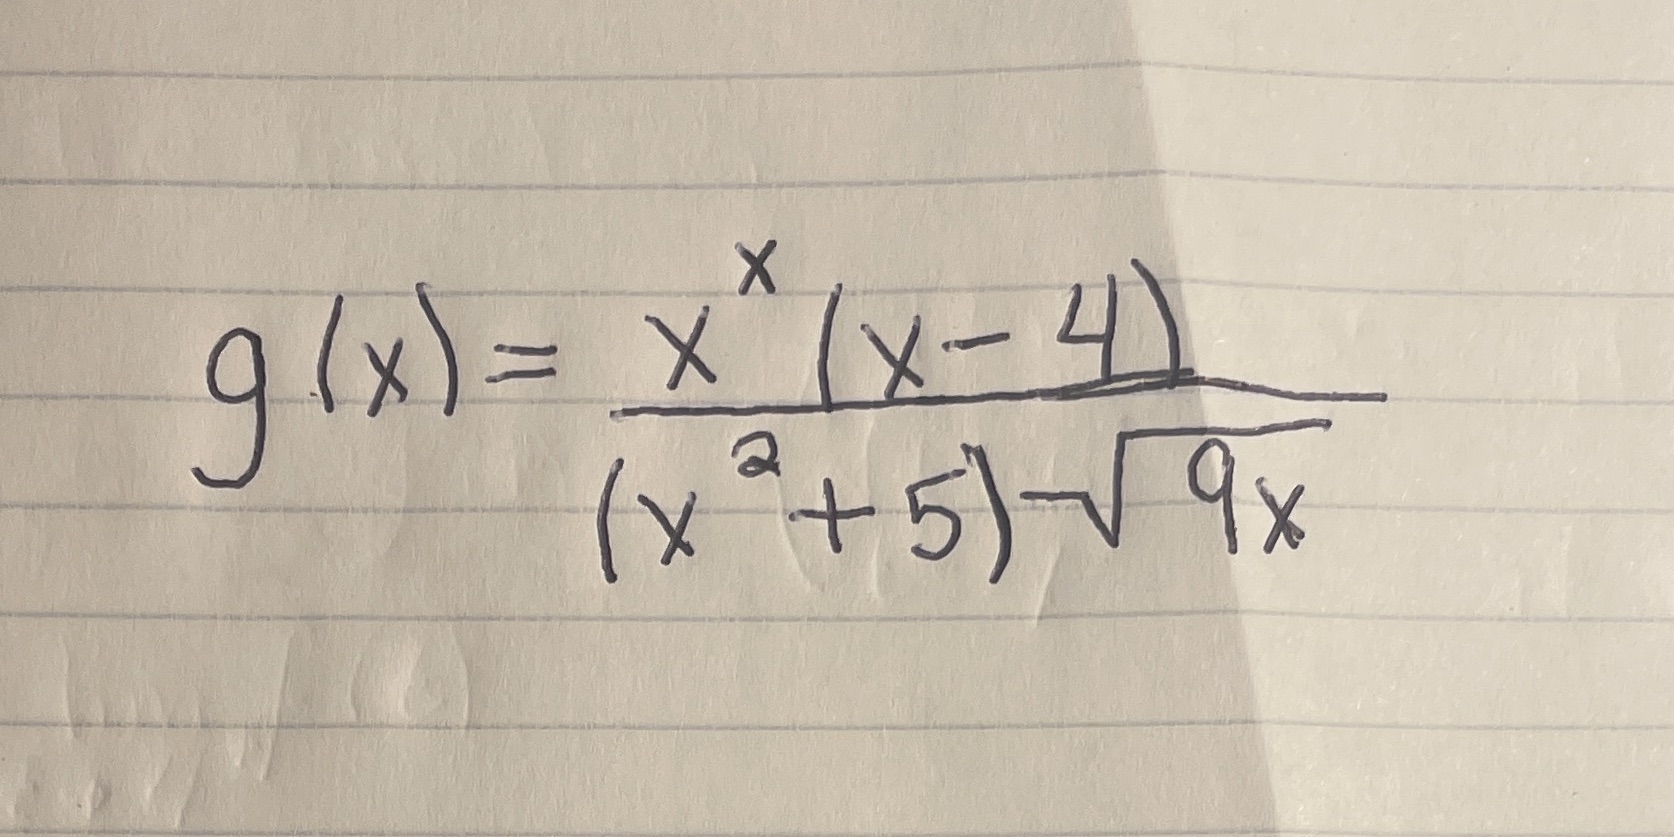 g(x) = x^x (x - 4) / (x^2 + 5) √9x